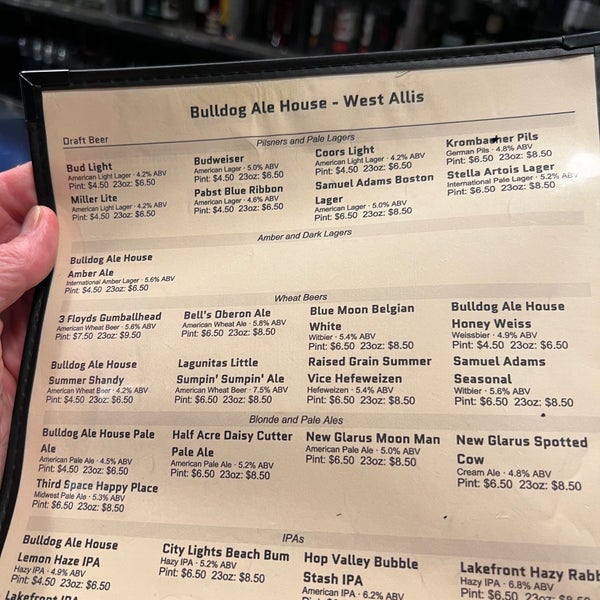 Bulldog Ale House - West Allis
Draft Beer
Pilsners and Pale Lagers
Bud Light
American Light Lager · 4.2% ABV
Pint: $4.50 23oz: $6.50
Budweiser
American Lager · 5.0% ABV
Pint: $4.50 23oz: $6.50
Coors Light
American Light Lager · 4.2% ABV
Pint: $4.50 23oz: $6.50
Krombacher Pils
German Pils · 4.8% ABV
Pint: $6.50 23oz: $8.50
Miller Lite
American Light Lager · 4.2% ABV
Pint: $4.50 23oz: $6.50
Pabst Blue Ribbon
American Lager · 4.6% ABV
Pint: $4.50 23oz: $6.50
Samuel Adams Boston
Lager
American Lager · 5.0% ABV
Pint: $6.50 23oz: $8.50
Stella Artois Lager
International Pale Lager · 5.2% ABV
Pint: $6.50 23oz: $8.50
Amber and Dark Lagers
Bulldog Ale House
Amber Ale
International Amber Lager · 5.6% ABV
Pint: $4.50 23oz: $6.50
Wheat Beers
3 Floyds Gumballhead
American Wheat Beer · 5.6% ABV
Pint: $7.50 23oz: $9.50
Bell's Oberon Ale
American Wheat Ale · 5.8% ABV
Pint: $6.50 23oz: $8.50
Blue Moon Belgian
White
Witbier · 5.4% ABV
Pint: $6.50 23oz: $8.50
Bulldog Ale House
Honey Weiss
Weissbier · 4.9% ABV
Pint: $4.50 23oz: $6.50
Bulldog Ale House
Summer Shandy
American Wheat Beer · 4.2% ABV
Pint: $4.50 23oz: $6.50
Lagunitas Little
Sumpin' Sumpin' Ale
American Wheat Beer · 7.5% ABV
Pint: $6.50 23oz: $8.50
Raised Grain Summer
Vice Hefeweizen
Hefeweizen · 5.4% ABV
Pint: $6.50 23oz: $8.50
Samuel Adams
Seasonal
Witbier · 5.6% ABV
Pint: $6.50 23oz: $8.50
Blonde and Pale Ales
Bulldog Ale House Pale
Ale
American Pale Ale · 4.5% ABV
Pint: $4.50 23oz: $6.50
Half Acre Daisy Cutter
Pale Ale
American Pale Ale · 5.2% ABV
Pint: $6.50 23oz: $8.50
New Glarus Moon Man
American Pale Ale · 5.0% ABV
Pint: $6.50 23oz: $8.50
New Glarus Spotted
Cow
Cream Ale · 4.8% ABV
Pint: $6.50 23oz: $8.50
Third Space Happy Place
Midwest Pale Ale · 5.3% ABV
Pint: $6.50 23oz: $8.50
IPAs
Bulldog Ale House
Lemon Haze IPA
Hazy IPA · 4.9% ABV
Pint: $4.50 23oz: $6.50
City Lights Beach Bum
Hazy IPA · 5.2% ABV
Pint: $6.50 23oz: $8.50
Hop Valley Bubble
Stash IPA
American IPA · 6.2% ABV
Lakefront Hazy Rabb
Hazy IPA · 6.8% ABV
Pint: $6.50 23oz: $8.50
Lakefront IPA